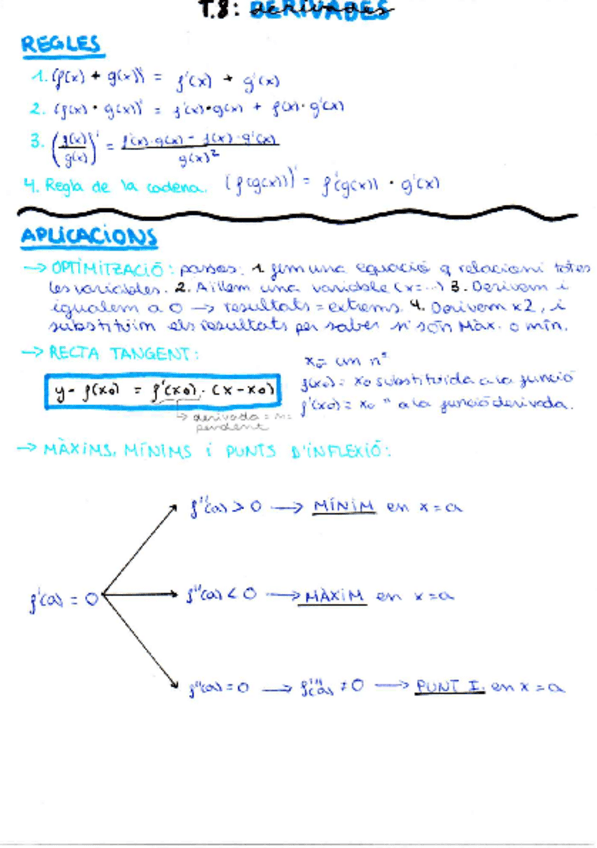 T.8: DERIVADES
REGLES
1. (f(x) + g(x))' = f'(x) + g'(x)
2. (f(x) · g(x))' = f'(x)·g(x) + f(x)·g'(x)
3. (f(x)/g(x))' = f'(x)·g(x) - f(x)·g'(x) / g(x)²
4. Regla de la cadena. (f(g(x)))' = f'(g(x)) · g'(x)
APLICACIONS
→ OPTIMITZACIÓ: passos: 1. fem una equació q relacioni totes
les variables. 2. Aïllem una variable (x=...) 3. Derivem i
igualem a 0 → resultats = extrems. 4. Derivem x2, i
substituïm els resultats per saber si són Màx. o mín.
→ RECTA TANGENT:
y - f(x0) = f'(x0) · (x - x0)
→ derivada = m =
pendent
x0 = un nº
f(x0) = x0 substituida a la funció
f'(x0) = x0 " a la funció derivada.
→ MÀXIMS, MÍNIMS i PUNTS D'INFLEXIÓ:
f''(a) > 0 → MÍNIM en x = a
f'(a) = 0
f''(a) < 0 → MÀXIM en x = a
f''(a) = 0 → f'''(a) ≠ 0 → PUNT I. en x = a